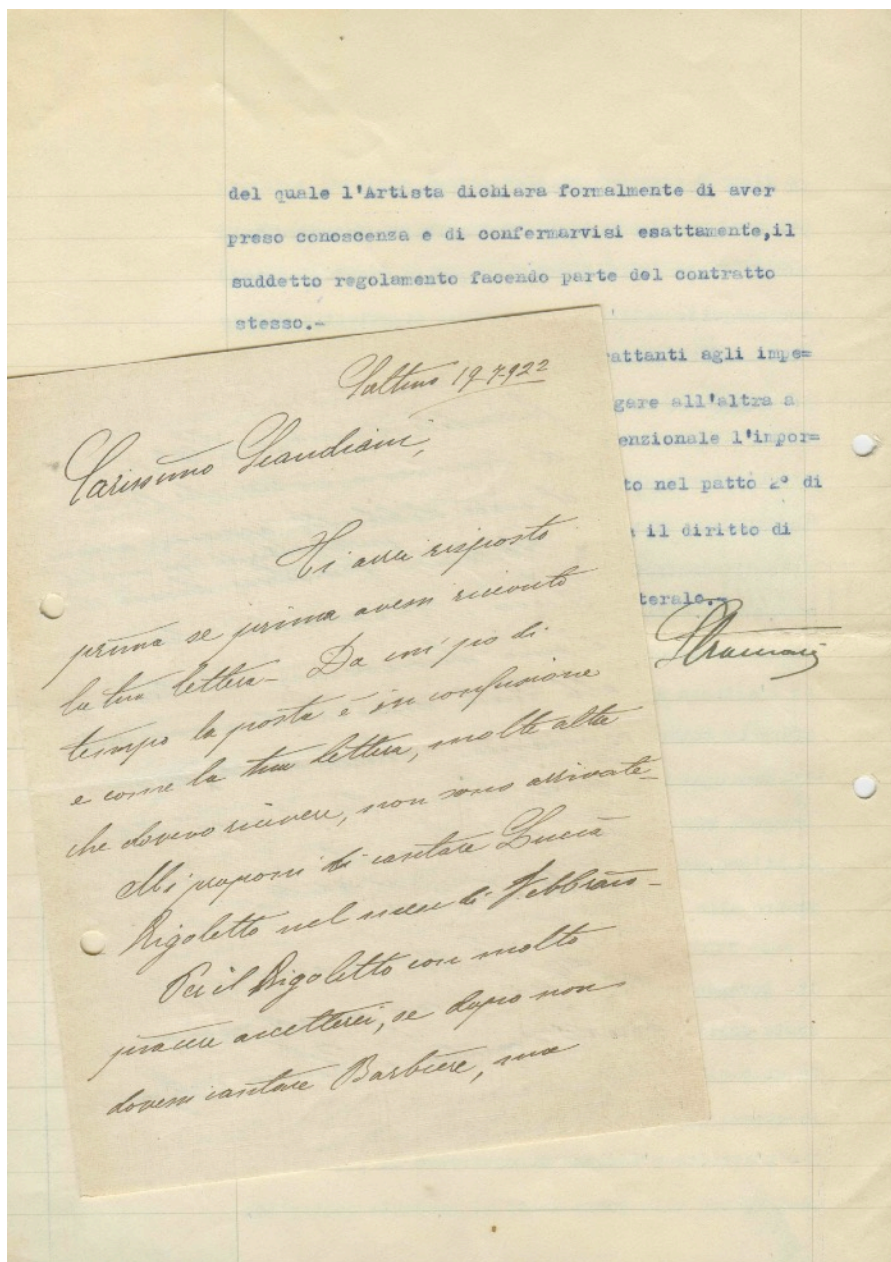 del quale l'Artista dichiara formalmente di aver
preso conoscenza e di confermarvisi esattamente,il
suddetto regolamento facendo parte del contratto
stesso.-
attanti agli impe=
gare all'altra a
enzionale l'impor=
to nel patto 2° di
il diritto di
terale.-
Saltino 19-7-922
Carissimo Scandiani,
Ti avrei risposto
prima se prima avessi ricevuto
la tua lettera - Da un po di
tempo la posta è in confusione
e come la tua lettera, molte altre
che dovevo ricevere, non sono arrivate -
Mi proponi di cantare Lucia
Rigoletto nel mese di Febbraio -
Per il Rigoletto con molto
piacere accetterei, se dopo non
dovessi cantare Barbiere, ma